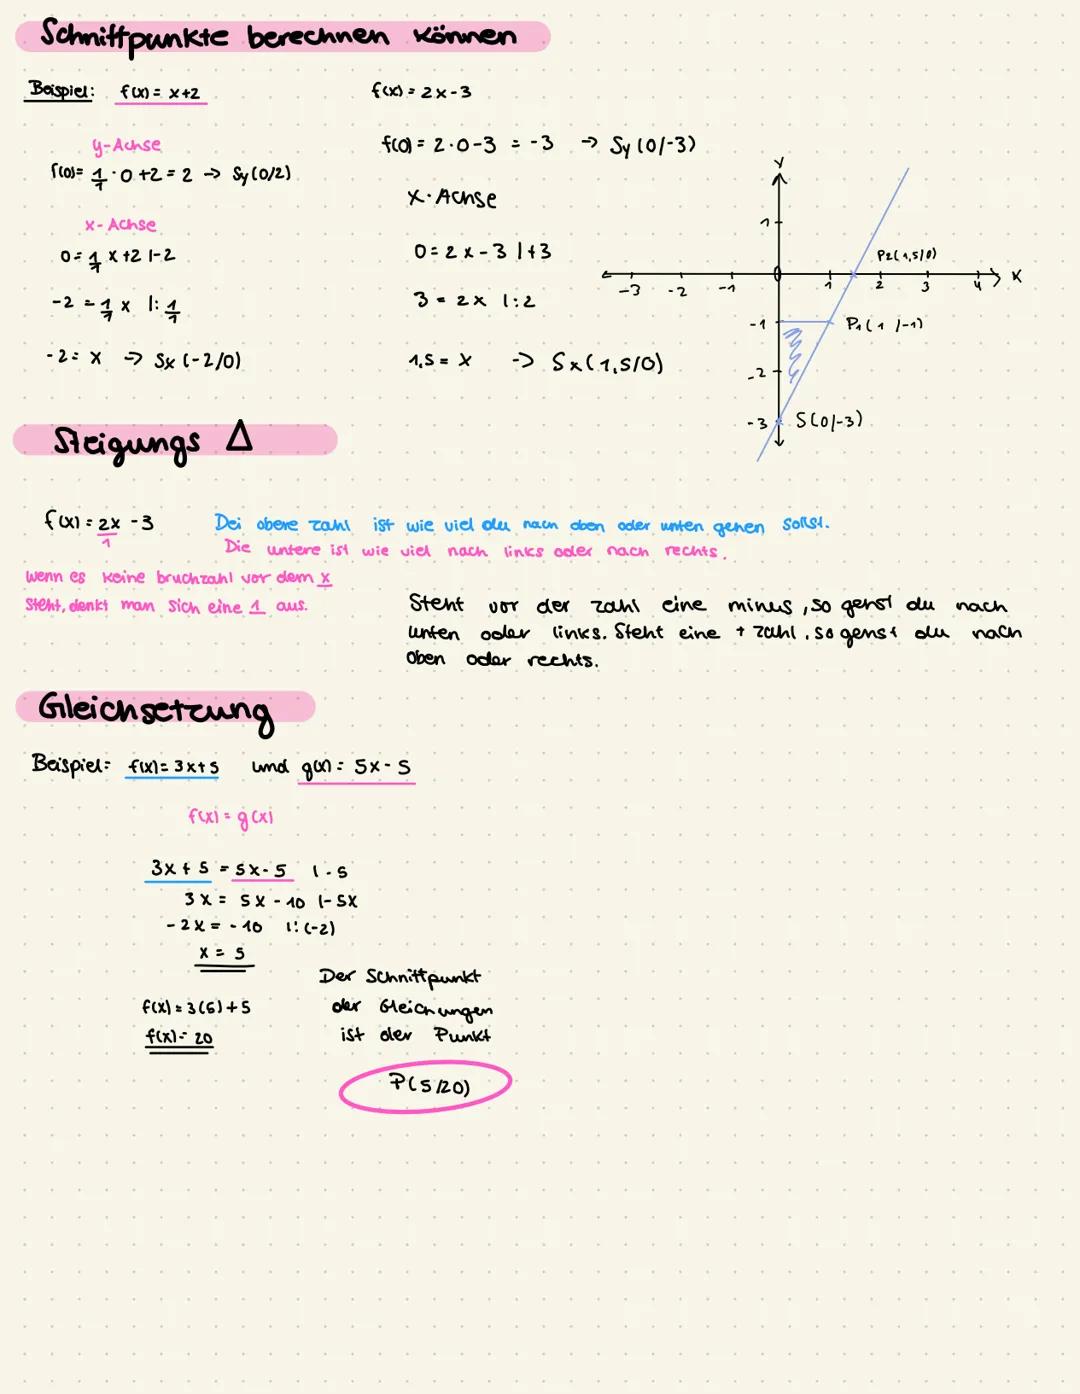 Schnittpunkte berechnen können
Beispiel: f(x) = x+2
y-Achse
f(0)= 1/1 · 0 +2 = 2 → Sy(0/2)
x-Achse
0 = 1/1 x +2 |-2
-2 = 1/1 x |: 1/1
-2 = x ⇒ Sx (-2/0)
f(x) = 2x-3
f(0) = 2·0-3 = -3 → Sy (0/-3)
x-Achse
0 = 2x - 3 |+3
3 = 2x |:2
1,5 = x → Sx(1,5/0)
y
1
P2(1,5/0)
-3 -2 -1 0 1 2 3 4 x
-1 P1(1/-1)
-2
-3 S(0/-3)
Steigungs Δ
f(x) = 2x/1 - 3
Dei obere zahl ist wie viel du nach oben oder unten gehen sollst.
Die untere ist wie viel nach links oder nach rechts.
Wenn es keine bruchzahl vor dem x
steht, denkt man sich eine 1 aus.
Steht vor der zahl eine minus, so gehst du nach
unten oder links. Steht eine + zahl, so gehst du nach
oben oder rechts.
Gleichsetzung
Beispiel: f(x) = 3x+5 und g(x) = 5x-5
f(x) = g(x)
3x + 5 = 5x - 5 |-5
3x = 5x - 10 |-5x
-2x = -10 |:(-2)
x = 5
f(x) = 3(5)+5
f(x) = 20
Der Schnittpunkt
der Gleichungen
ist der Punkt
P(5/20)